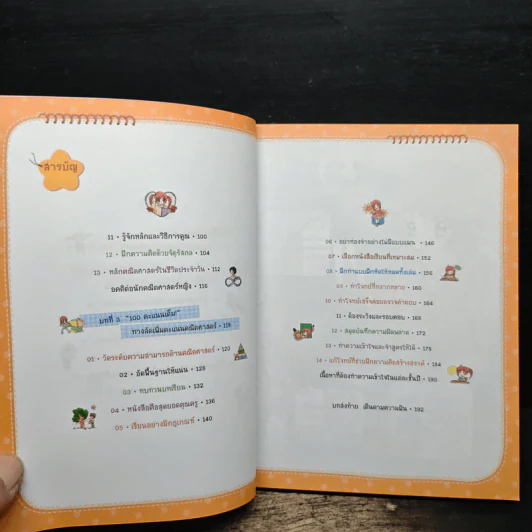 สารบัญ
11 • รู้จักหลักและวิธีการคูณ • 100
12 • ฝึกความคิดด้วยจัตุรัสกล • 104
13 • หลักคณิตศาสตร์ในชีวิตประจำวัน • 112
อคติต่อนักคณิตศาสตร์หญิง • 116
บทที่ 3 "100 คะแนนเต็ม!"
ทางลัดเพิ่มคะแนนคณิตศาสตร์ • 118
01 • วัดระดับความสามารถด้านคณิตศาสตร์ • 120
02 • อัดพื้นฐานให้แน่น • 128
03 • ทบทวนบทเรียน • 132
04 • หนังสือคือสุดยอดคุณครู • 136
05 • เรียนอย่างมีกฎเกณฑ์ • 140
06 • อย่าท่องจำอย่างไม่มีแบบแผน • 146
07 • เลือกหนังสือเรียนที่เหมาะสม • 152
08 • ฝึกทำแบบฝึกหัดให้หมดทั้งเล่ม • 156
09 • ทำโจทย์ที่หลากหลาย • 160
10 • ทำโจทย์เสร็จต้องตรวจคำตอบ • 164
11 • ต้องระวังและรอบคอบ • 168
12 • สมุดบันทึกความผิดพลาด • 172
13 • ทำความเข้าใจและจำสูตรให้ได้ • 178
14 • แก้โจทย์ที่ช่วยฝึกความคิดสร้างสรรค์ • 184
เนื้อหาที่ต้องทำความเข้าใจในแต่ละชั้นปี • 190
บทส่งท้าย เดินตามความฝัน • 192